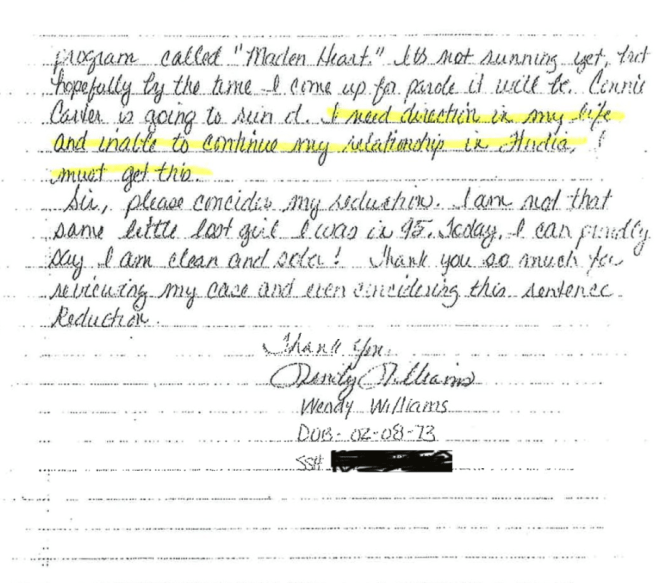 program called "Maden Heart." It's not running yet, but
hopefully by the time I come up for parole it will be. Connie
Carter is going to run it. I need direction in my life
and inable to continue my relationship in
must get this.
Sir, please concider my reduction. I am not that
same little lost girl I was in 95. Today, I can proudly
say I am clean and sober! Thank you so much for
reviewing my case and even concidering this sentence
Reduction.
Thank You,
Wendy Williams
Wendy Williams
DOB- 02-08-73
SS#